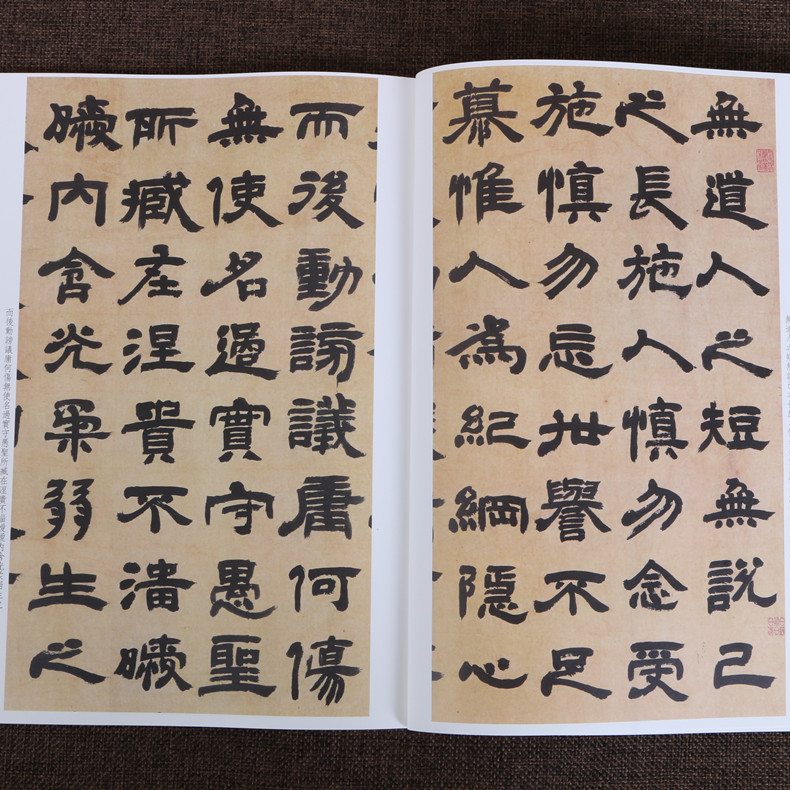 無道人之短無說己
之長施人慎勿念受
施慎勿忘世譽不足
慕惟人為紀綱隱心
而後動謗議庸何傷
無使名過實守愚聖
所臧在涅貴不淄曖
曖內含光柔弱生之
而後動謗議庸何傷無使名過實守愚聖所臧在涅貴不淄曖曖內含光柔弱生之